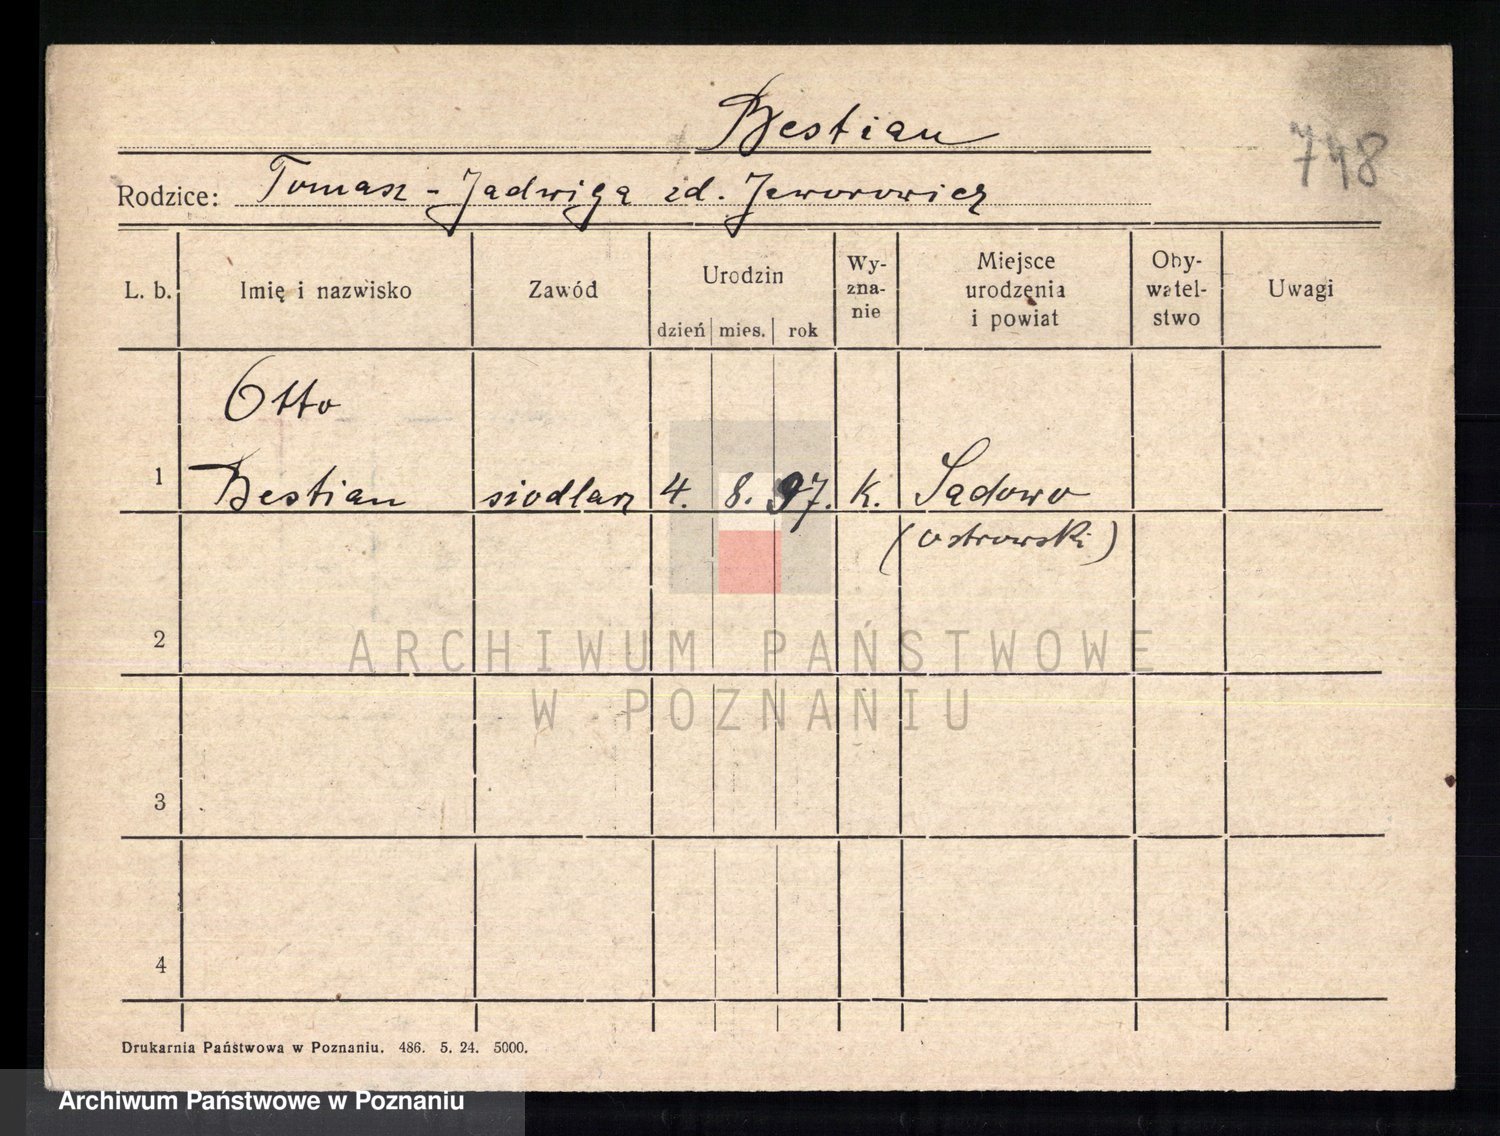 Bestian
748
Rodzice: Tomasz - Jadwiga zd. Jaworowicz
L. b.
Imię i nazwisko
Zawód
Urodzin
dzień mies. rok
Wy-
zna-
nie
Miejsce
urodzenia
i powiat
Oby-
watel-
stwo
Uwagi
Otto
1 Bestian siodlarz 4. 8. 97. k. Sadowo
(ostrowski)
2
ARCHIWUM PAŃSTWOWE
W POZNANIU
3
4
Drukarnia Państwowa w Poznaniu. 486. 5. 24. 5000.
Archiwum Państwowe w Poznaniu